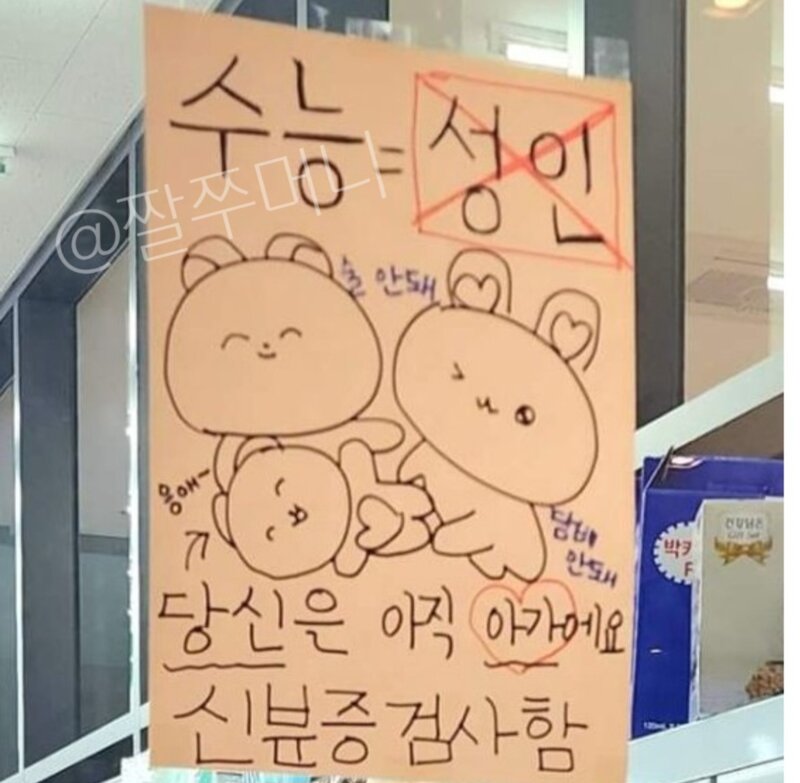 수능 = 성인
@짤쭈머니
술 안돼
응애~
담배
안돼
당신은 아직 아가에요
신분증 검사함
건강담은
박카
F